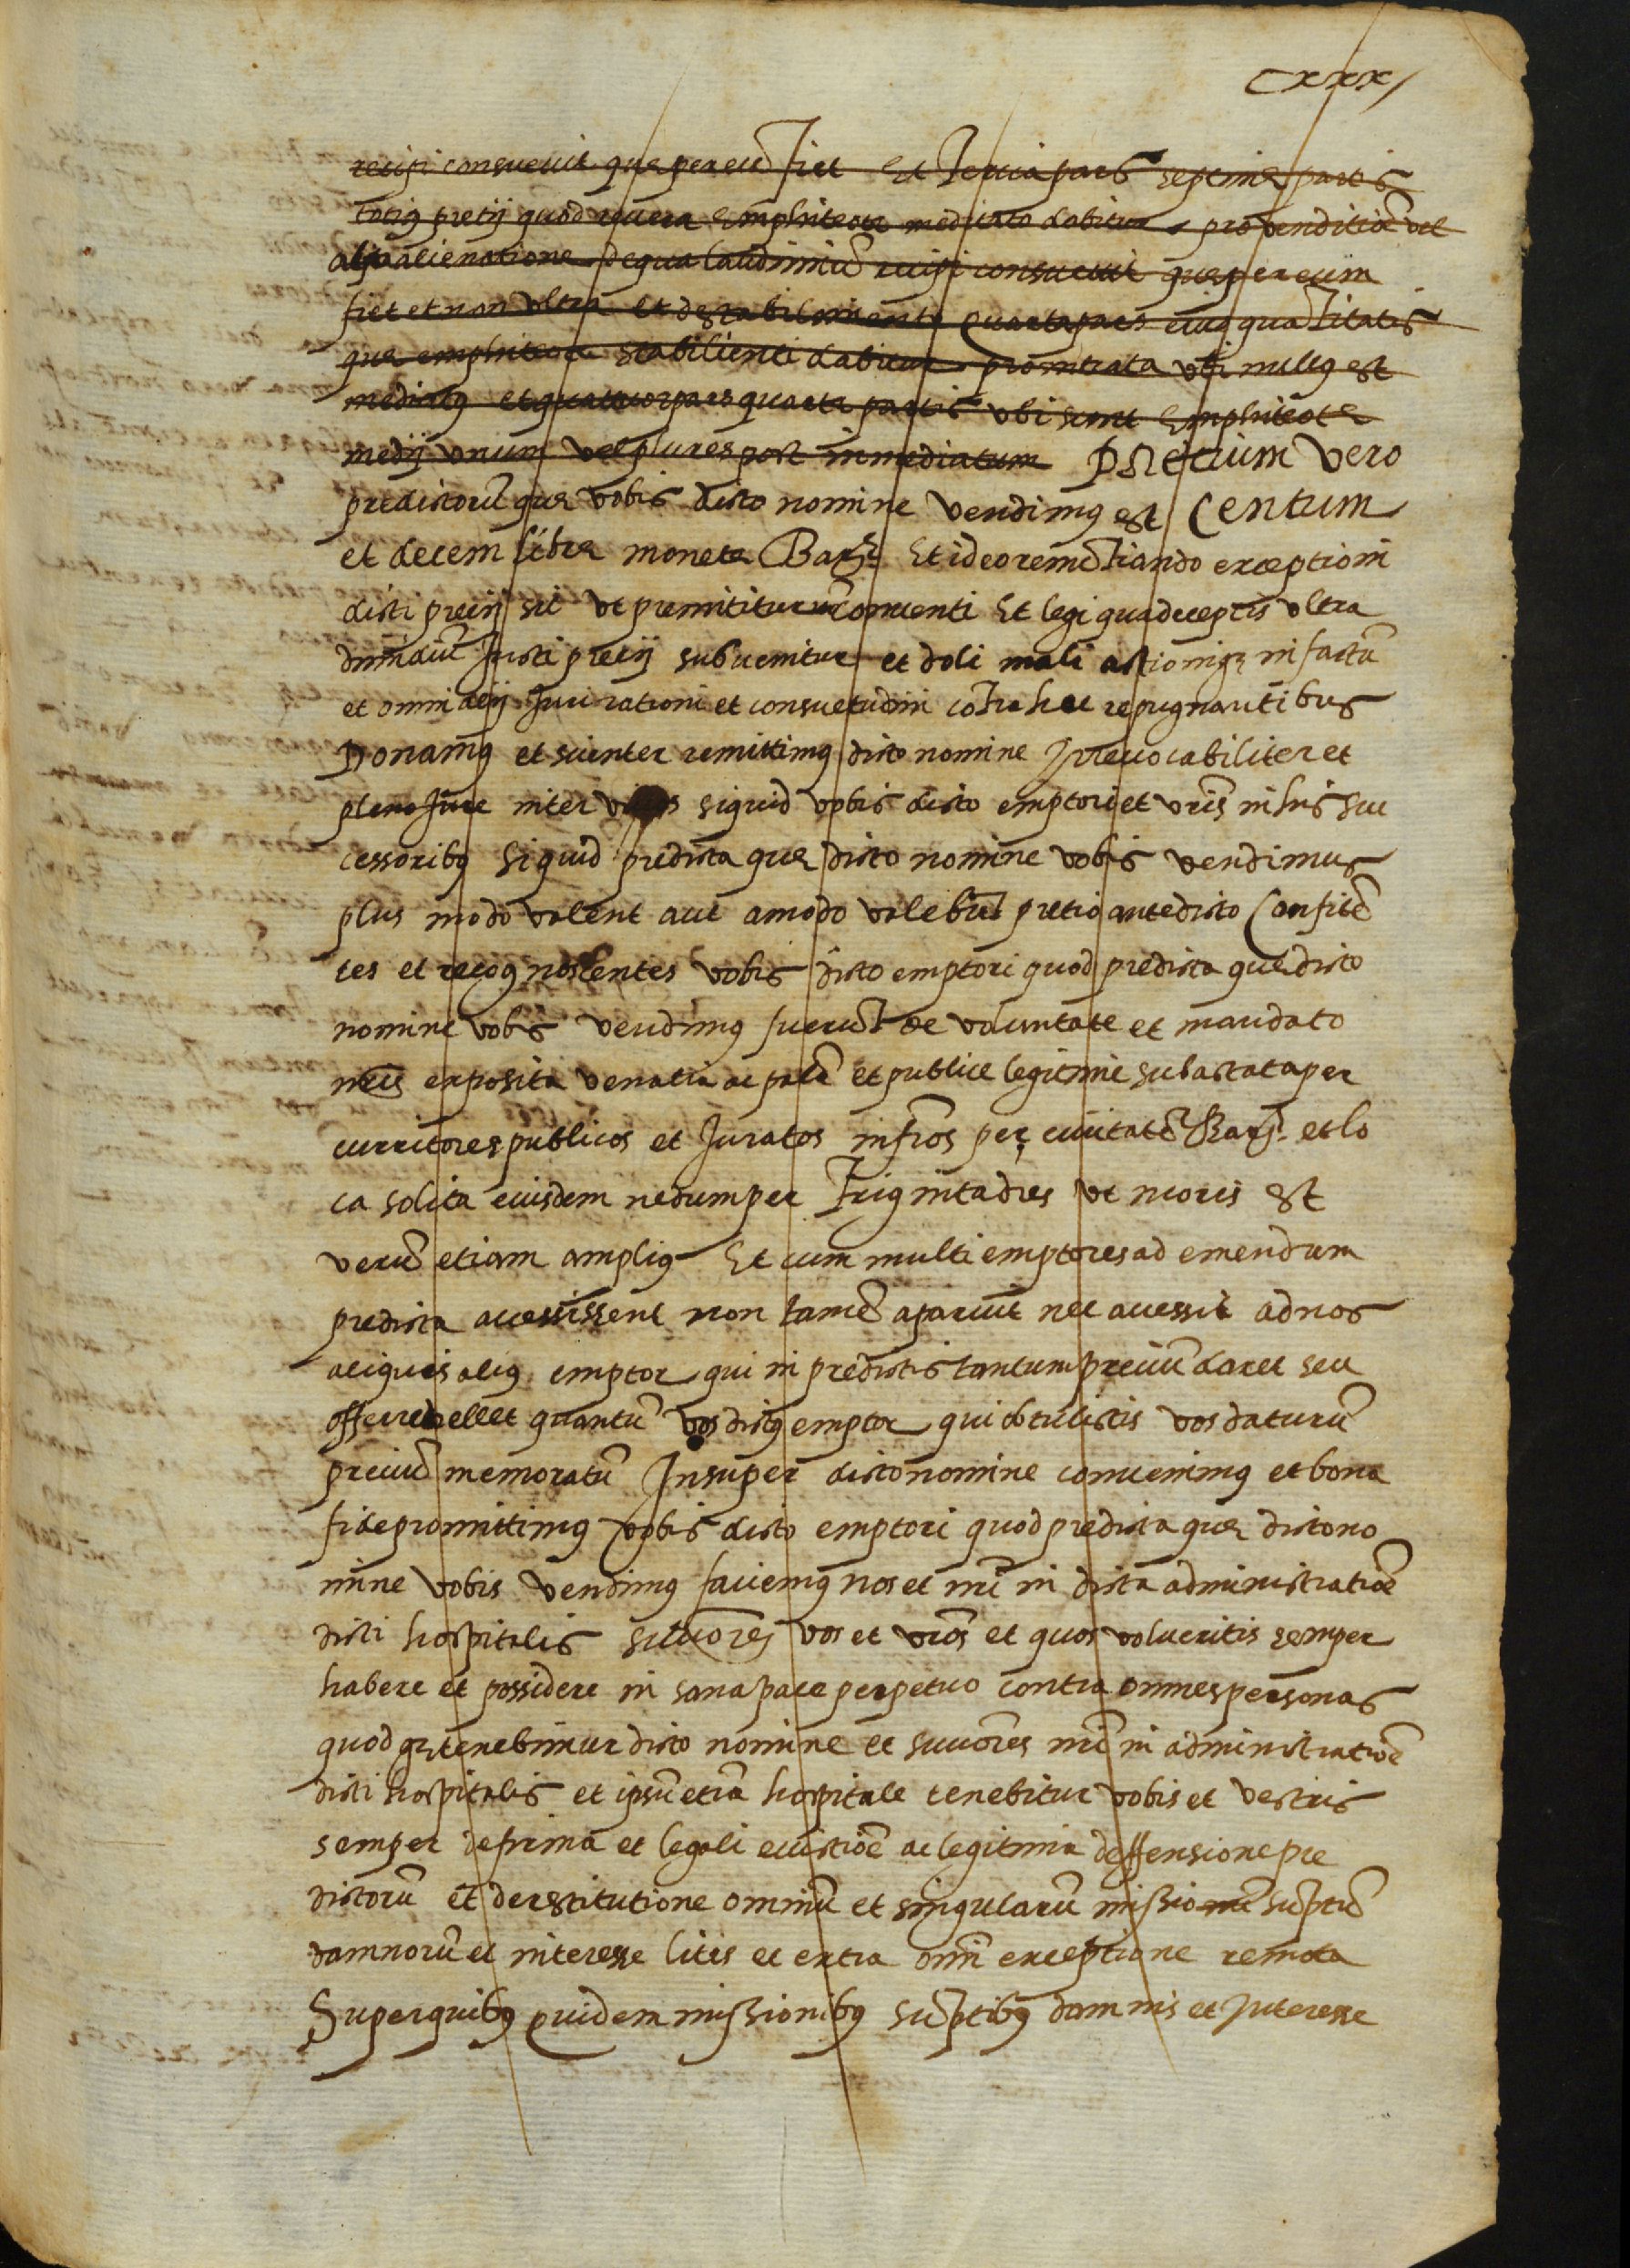 cxxx
recipi consuevit que per eum fiet Et Tercia pars septime partis
totius pretij quod revera Emphiteote mediato dabitur pro venditioē vel
alia alienatione de qua laudimiū recipi consuevit que per eum
fiet et non ultra Et de stabilimento Quarta pars eius quātitatis
que emphiteote stabilienti dabitur pro intrata ubi nullus est
mediatus et quatuor pars quarte partis ubi sunt Emphiteote
medij unum vel plures post inmediatum Pretium vero
predictorū que vobis dicto nomine vendimus est Centum
et decem libre monete Barne Et ideo renūtiando exceptioni
dicti precij sic ut premititur cōventi Et legi qua deceptis ultra
dimidiū Justi precij subvenitur et doli mali actionique in factū
et omni alij Juri rationi et consuetudini cōtra hec repugnantibus
Donamus et scienter remittimus dicto nomine Irrevocabiliter et
pleno Jure inter vivos siquid vobis dicto emptori et vr̄is in his suc
cessoribus Si quid predicta que dicto nomine vobis vendimus
plus modo valent aut amodo valebūt pretio antedicto Confitē
tes et recognoscentes vobis dicto emptori quod predicta que dicto
nomine vobis vendimus fuerūt de voluntate et mandato
nr̄is exposita venalia ac palā et publice legitime subastata per
curritores publicos et Juratos infr̄os per civitatē Barne et lo
ca solita eiusdem nedum per Triginta dies ut moris est
verū etiam amplius Et cum multi emptores ad emendum
predicta accessissent non tamē aparuit nec accessit ad nos
aliquis alius emptor qui in predictis tantum preciū daret seu
offerre vellet quantū vos dictus emptor qui obtulistis vos daturū
preciū memoratū Insuper dicto nomine convenimus et bona
fide promittimus vobis dicto emptori quod predicta que dicto no
mine vobis vendimus faciemus nos et nr̄i in dicta administratiōe
dicti hospitalis succōres vos et vr̄os et quos volueritis semper
habere et possidere in sana pace perpetuo contra omnes personas
quodque tenebimur dicto nomine et succōres nr̄i in administratiōe
dicti hospitalis et ipsū etiā hospitale tenebitur vobis et vestris
semper de firma et legali evictiōe ac legitima deffensione pre
dictorū et de restitutione omniū et singularū missionū sūptuū
damnorū et interesse litis et extra om̄i exceptione remota
Super quibus quidem missionibus sūptibus damnis et Interesse